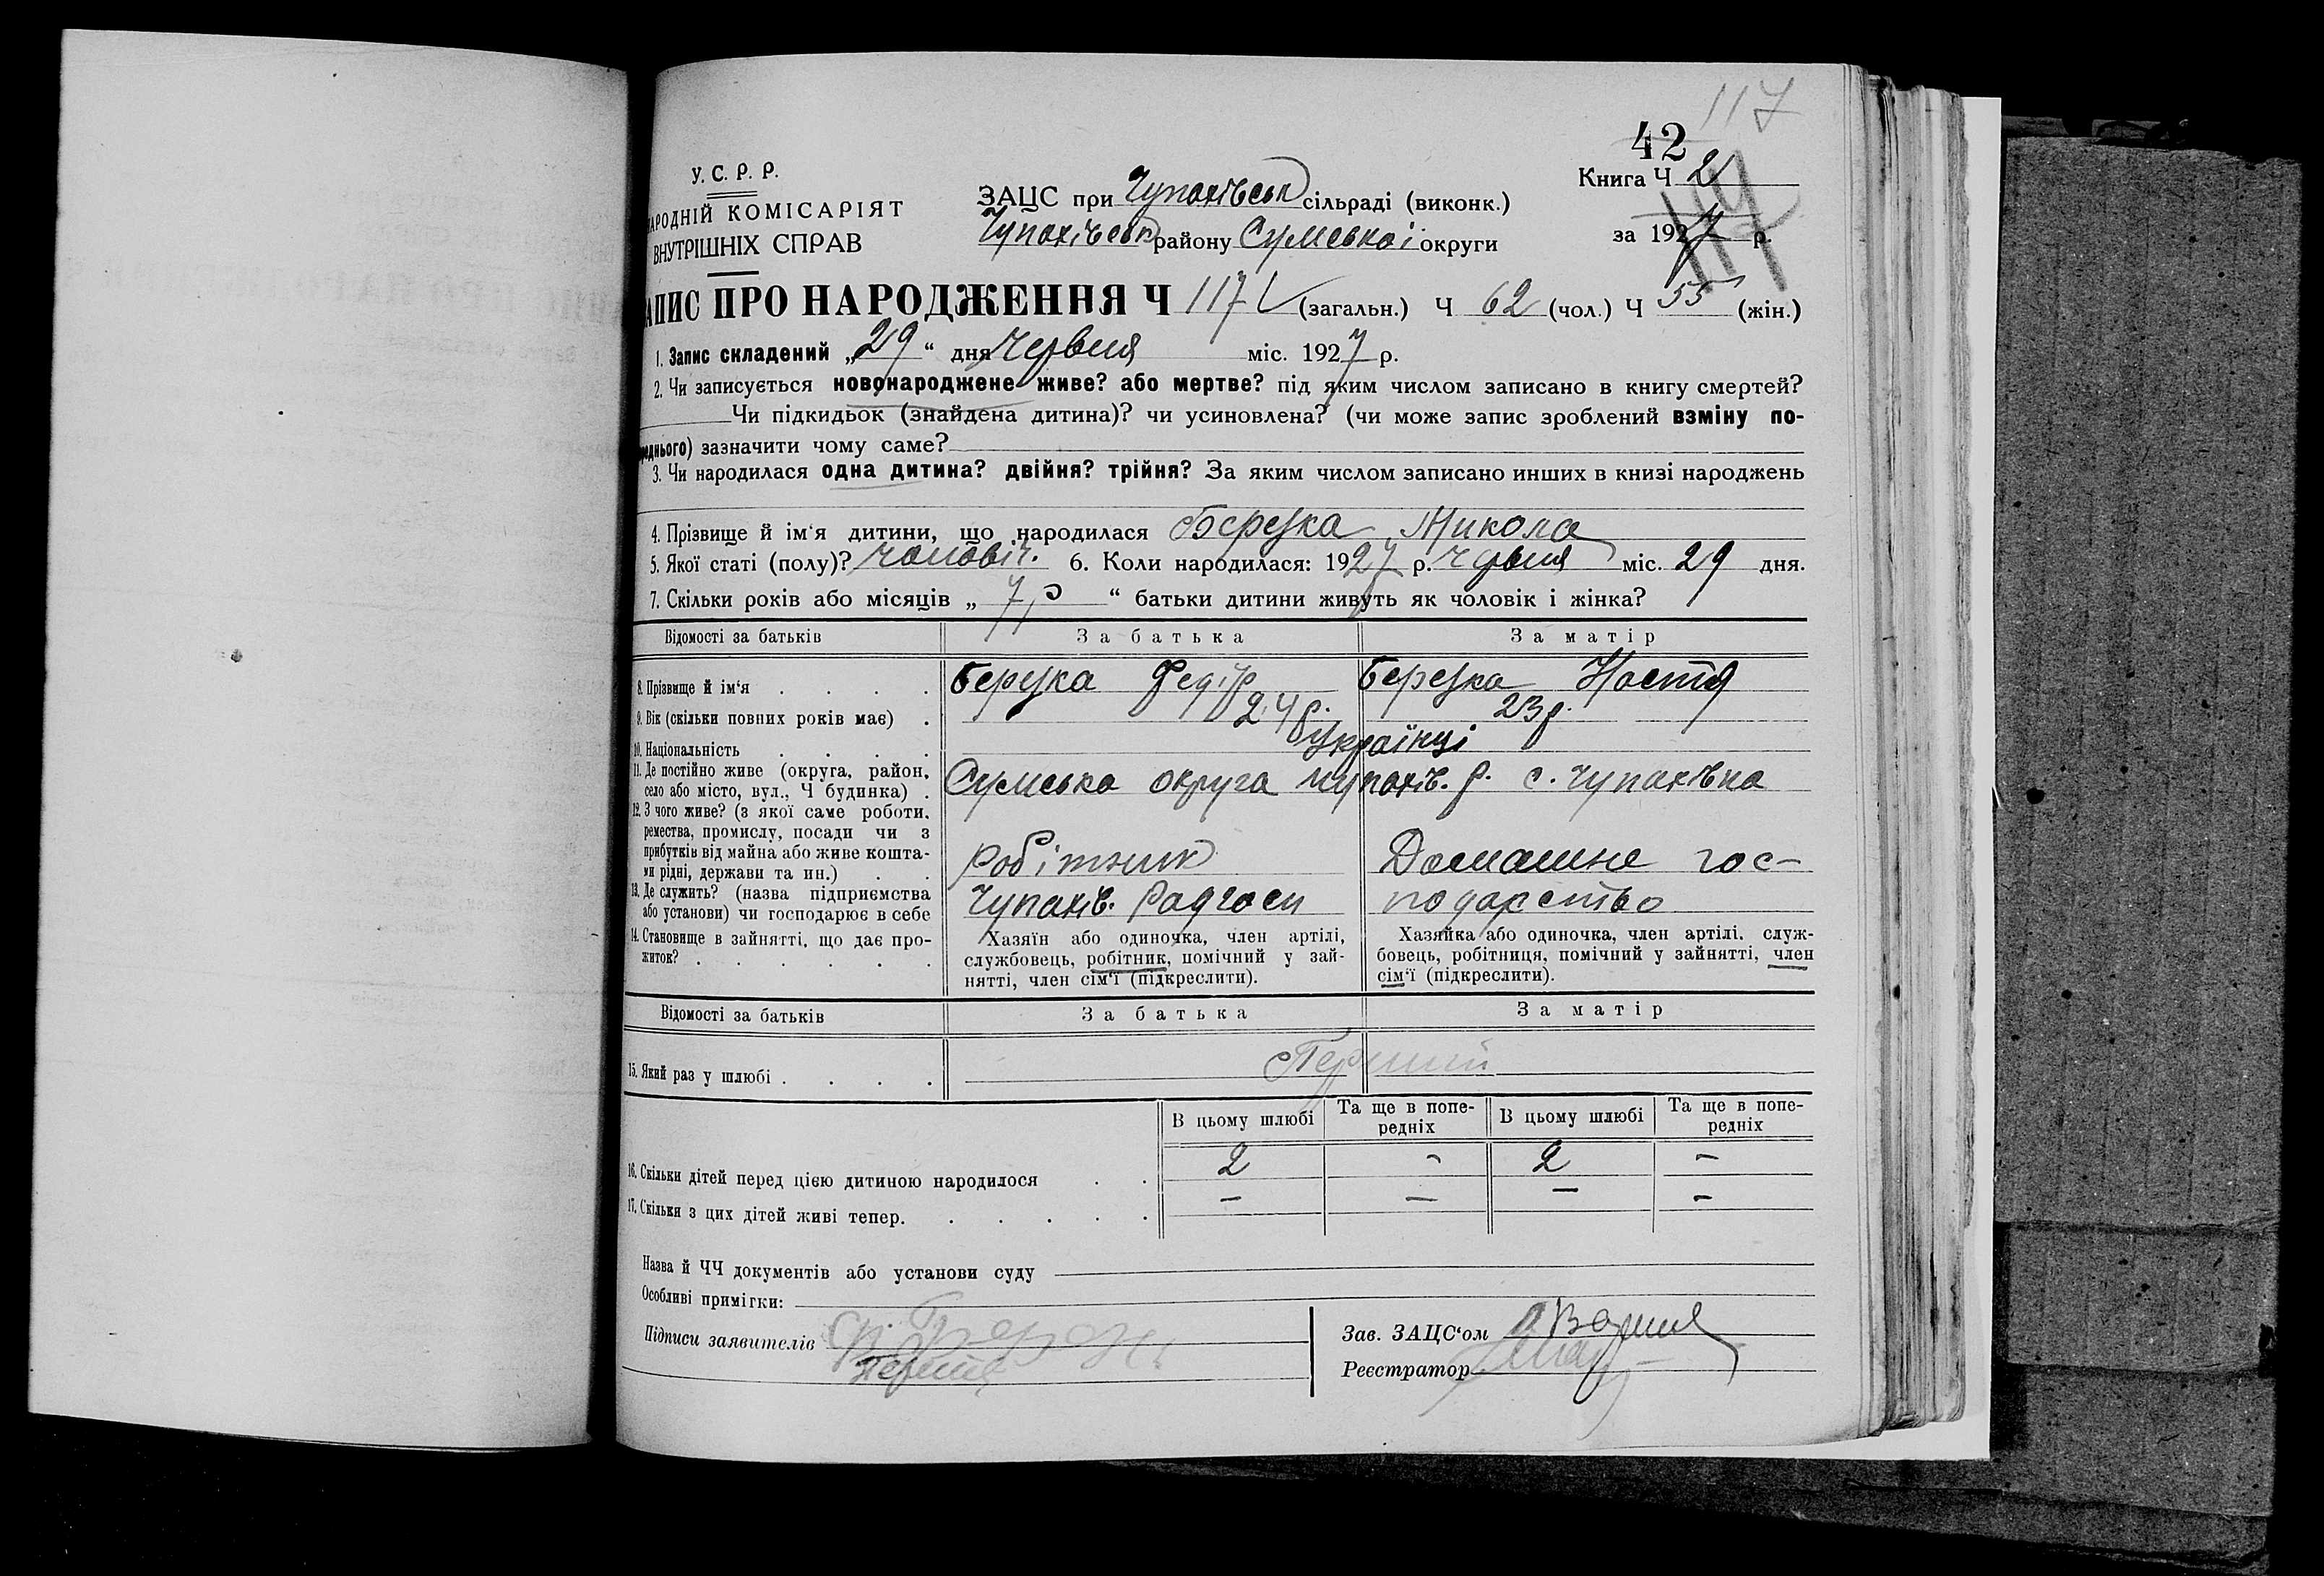 117
42
У. С. Р. Р.
НАРОДНІЙ КОМІСАРІЯТ
ВНУТРІШНІХ СПРАВ
ЗАЦС при Чупахівськ сільраді (виконк.)
Чупахівськ району Сумської округи
Книга Ч 2
за 1927 р.
117
АПИС ПРО НАРОДЖЕННЯ Ч 117 (загальн.) Ч 62 (чол.) Ч 55 (жін.)
1. Запис складений „29“ дня Червня міс. 1927 р.
2. Чи записується новонароджене живе? або мертве? під яким числом записано в книгу смертей?
Чи підкидьок (знайдена дитина)? чи усиновлена? (чи може запис зроблений взміну по-
реднього) зазначити чому саме?
3. Чи народилася одна дитина? двійня? трійня? За яким числом записано инших в книзі народжень
4. Прізвище й ім‘я дитини, що народилася Березка Микола
5. Якої статі (полу)? чоловіч. 6. Коли народилася: 1927 р. Червня міс. 29 дня.
7. Скільки років або місяців „ 7 р “ батьки дитини живуть як чоловік і жінка?
Відомості за батьків За батька За матір
8. Прізвище й ім‘я . . . . Березка Федір Березка Настя
9. Вік (скільки повних років має) . 24 р. 23 р.
10. Національність . . . . Українці
11. Де постійно живе (округа, район,
село або місто, вул., Ч будинка) . Сумська округа Чупахів. р. с. Чупахівка
12. З чого живе? (з якої саме роботи,
ремества, промислу, посади чи з
прибутків від майна або живе кошта-
ми рідні, держави та ин.) . . робітник Домашнє гос-
13. Де служить? (назва підприємства
або установи) чи господарює в себе Чупахів. Радгосп подарство
14. Становище в зайнятті, що дає про-
житок? . . . . . .
Хазяїн або одиночка, член артілі,
службовець, робітник, помічний у зай-
нятті, член сім‘ї (підкреслити).
Хазяйка або одиночка, член артілі, служ-
бовець, робітниця, помічний у зайнятті, член
сім‘ї (підкреслити).
Відомості за батьків За батька За матір
15. Який раз у шлюбі . . . . Перший
В цьому шлюбі Та ще в попе-
редніх В цьому шлюбі Та ще в попе-
редніх
16. Скільки дітей перед цією дитиною народилося . . 2 - 2 -
17. Скільки з цих дітей живі тепер. . . . . . — — — -
Назва й ЧЧ документів або установи суду
Особливі примігки:
Підписи заявителів
Зав. ЗАЦС‘ом
Реєстратор